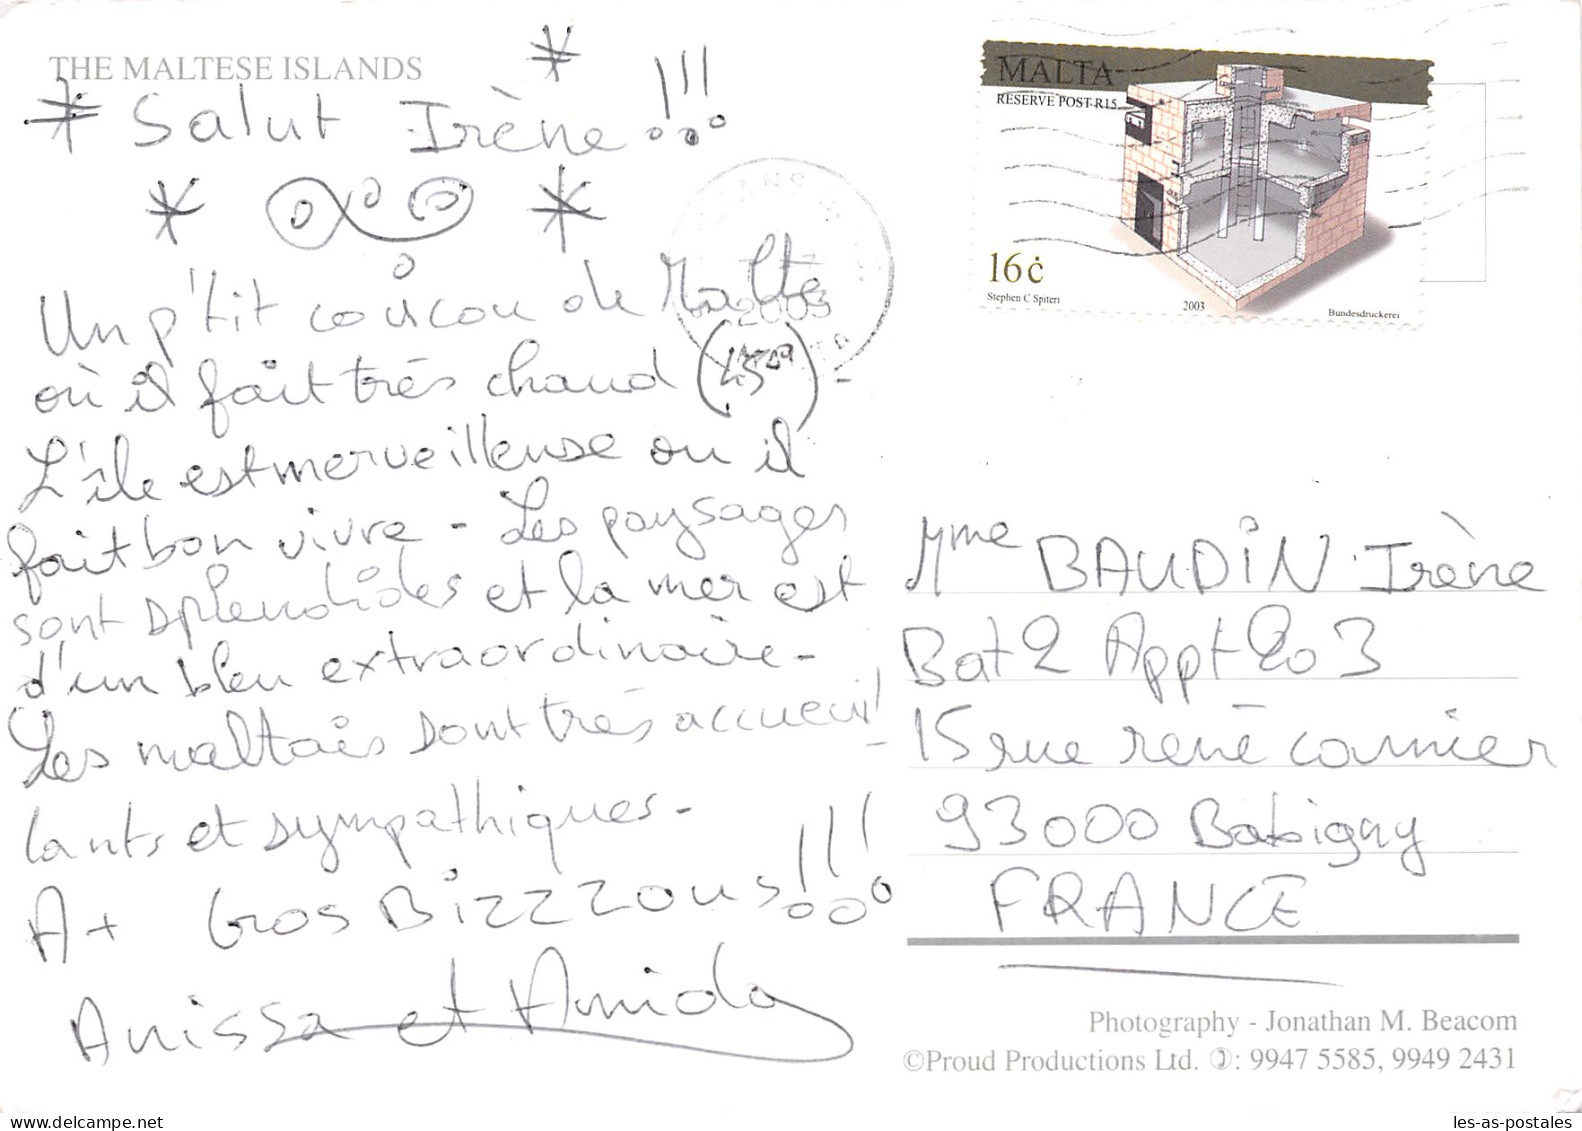 THE MALTESE ISLANDS
Salut Irène !!!
Un p'tit coucou de Malte
où il fait très chaud (45°) -
L'île est merveilleuse ou il
fait bon vivre - Les paysages
sont splendides et la mer est
d'un bleu extraordinaire -
Les maltais sont très accueil
-
lants et sympathiques -
A+ Gros Bizzzous !!!
Anissa et
MALTA
RESERVE POST R15
16ċ
Stephen C Spiteri
2003
Bundesdruckerei
2003
Mme BAUDIN Irène
Bat 2 Appt 203
15 rue rené
93000 Bobigny
FRANCE
Photography - Jonathan M. Beacom
©Proud Productions Ltd. ✆: 9947 5585, 9949 2431
les-as-postales